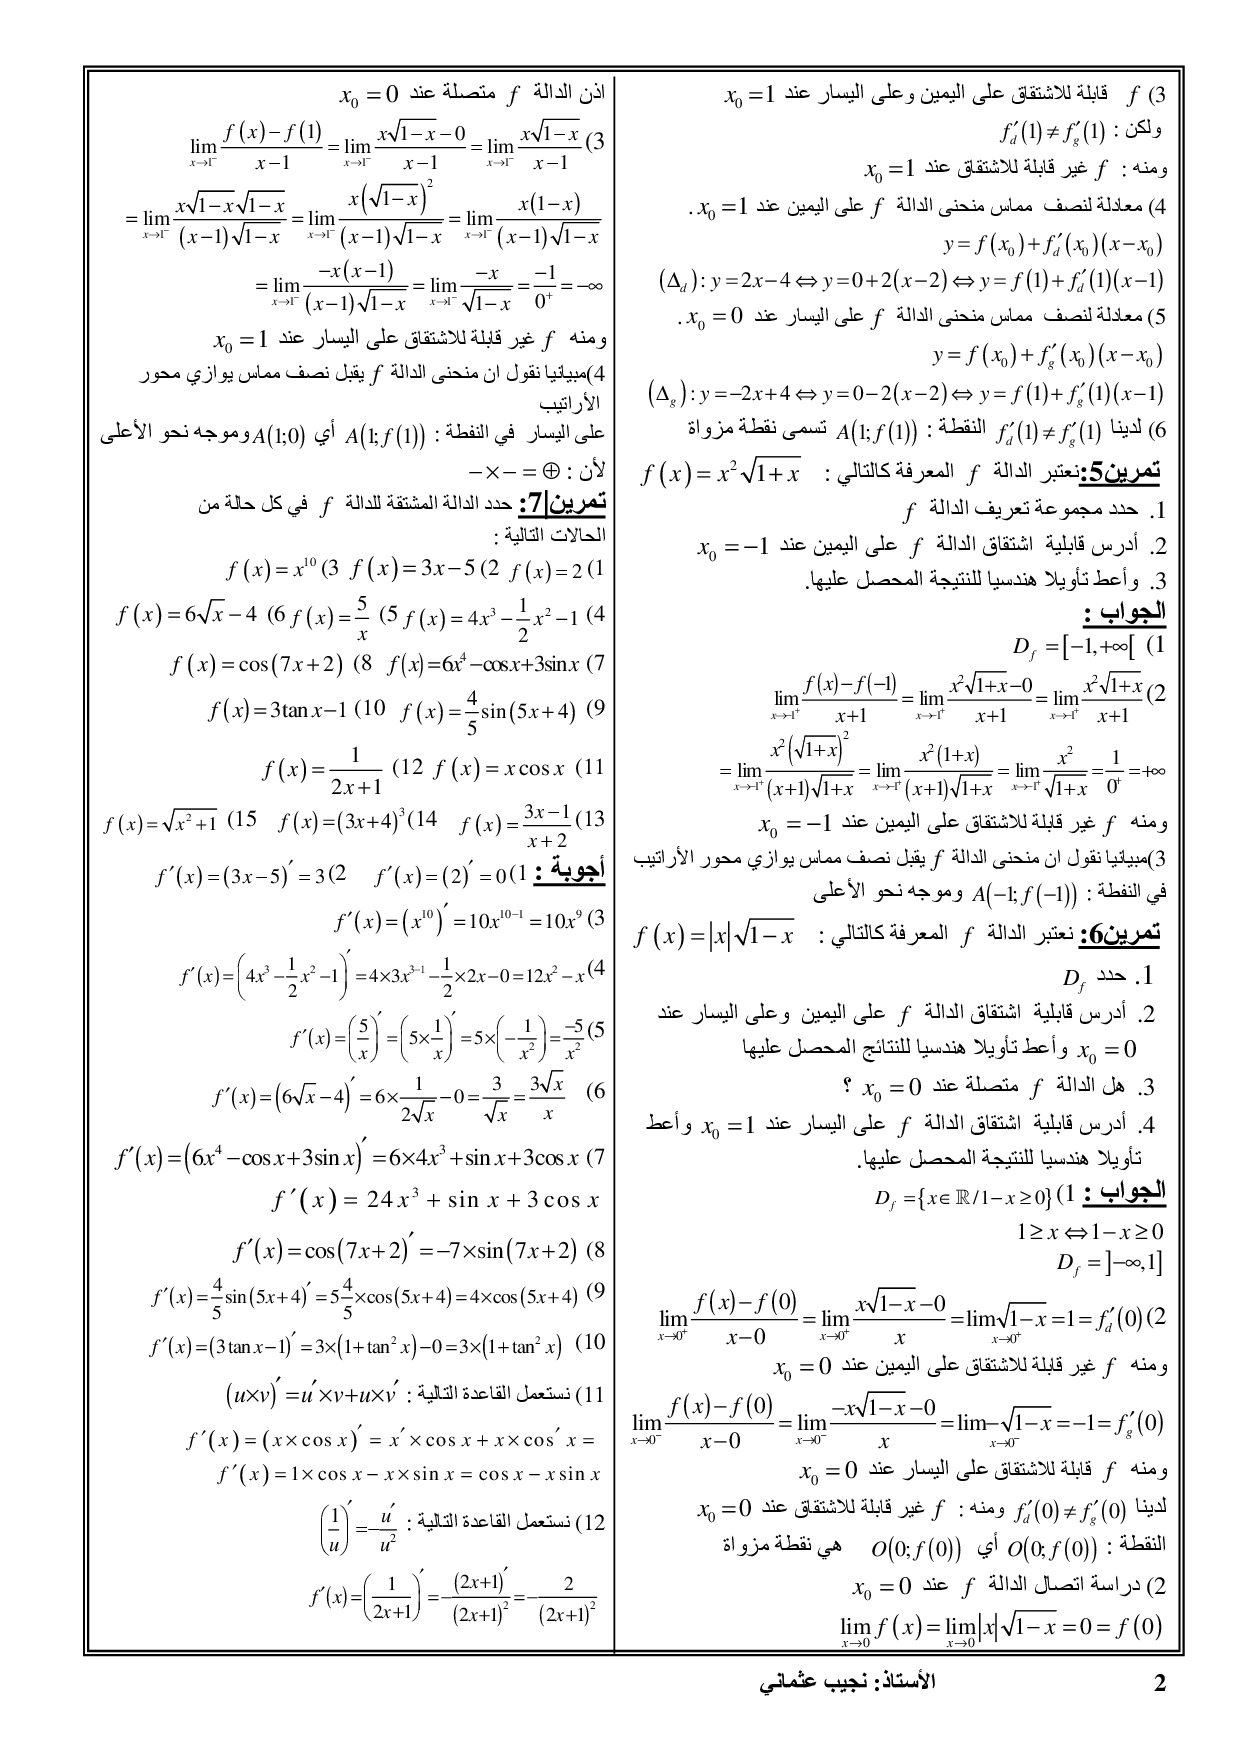 3) f قابلة للاشتقاق على اليمين وعلى اليسار عند x₀ = 1
ولكن : f′d(1) ≠ f′g(1)
ومنه : f غير قابلة للاشتقاق عند x₀ = 1
4) معادلة لنصف مماس منحنى الدالة f على اليمين عند x₀ = 1 .
y = f(x₀) + f′d(x₀)(x − x₀)
(Δd): y = 2x − 4 ⇔ y = 0 + 2(x − 2) ⇔ y = f(1) + f′d(1)(x − 1)
5) معادلة لنصف مماس منحنى الدالة f على اليسار عند x₀ = 0 .
y = f(x₀) + f′g(x₀)(x − x₀)
(Δg): y = −2x + 4 ⇔ y = 0 − 2(x − 2) ⇔ y = f(1) + f′g(1)(x − 1)
6) لدينا f′d(1) ≠ f′g(1) النقطة : A(1; f(1)) تسمى نقطة مزواة
تمرين5: نعتبر الدالة f المعرفة كالتالي : f(x) = x²√(1+x)
1. حدد مجموعة تعريف الدالة f
2. أدرس قابلية اشتقاق الدالة f على اليمين عند x₀ = −1
3. وأعط تأويلا هندسيا للنتيجة المحصل عليها.
الجواب :
1) Df = [−1,+∞[
2) lim x→−1⁺ (f(x) − f(−1))/(x+1) = lim x→−1⁺ (x²√(1+x) − 0)/(x+1) = lim x→−1⁺ x²√(1+x)/(x+1)
= lim x→−1⁺ x²(√(1+x))²/((x+1)√(1+x)) = lim x→−1⁺ x²(1+x)/((x+1)√(1+x)) = lim x→−1⁺ x²/√(1+x) = 1/0⁺ = +∞
ومنه f غير قابلة للاشتقاق على اليمين عند x₀ = −1
3)مبيانيا نقول ان منحنى الدالة f يقبل نصف مماس يوازي محور الأراتيب
في النفطة : A(−1; f(−1)) وموجه نحو الأعلى
تمرين6: نعتبر الدالة f المعرفة كالتالي : f(x) = |x|√(1−x)
1. حدد Df
2. أدرس قابلية اشتقاق الدالة f على اليمين وعلى اليسار عند
x₀ = 0 وأعط تأويلا هندسيا للنتائج المحصل عليها
3. هل الدالة f متصلة عند x₀ = 0 ؟
4. أدرس قابلية اشتقاق الدالة f على اليسار عند x₀ = 1 وأعط
تأويلا هندسيا للنتيجة المحصل عليها.
الجواب : 1) Df = {x ∈ ℝ / 1 − x ≥ 0}
1 ≥ x ⇔ 1 − x ≥ 0
Df = ]−∞,1]
2) lim x→0⁺ (f(x) − f(0))/(x−0) = lim x→0⁺ (x√(1−x) − 0)/x = lim x→0⁺ √(1−x) = 1 = f′d(0)
ومنه f غير قابلة للاشتقاق على اليمين عند x₀ = 0
lim x→0⁻ (f(x) − f(0))/(x−0) = lim x→0⁻ (−x√(1−x) − 0)/x = lim x→0⁻ −√(1−x) = −1 = f′g(0)
ومنه f قابلة للاشتقاق على اليسار عند x₀ = 0
لدينا f′d(0) ≠ f′g(0) ومنه : f غير قابلة للاشتقاق عند x₀ = 0
النقطة : O(0; f(0)) أي O(0; f(0)) هي نقطة مزواة
2) دراسة اتصال الدالة f عند x₀ = 0
lim x→0 f(x) = lim x→0 |x|√(1−x) = 0 = f(0)
اذن الدالة f متصلة عند x₀ = 0
3) lim x→1⁻ (f(x) − f(1))/(x−1) = lim x→1⁻ (x√(1−x) − 0)/(x−1) = lim x→1⁻ x√(1−x)/(x−1)
= lim x→1⁻ x√(1−x)√(1−x)/((x−1)√(1−x)) = lim x→1⁻ x(√(1−x))²/((x−1)√(1−x)) = lim x→1⁻ x(1−x)/((x−1)√(1−x))
= lim x→1⁻ −x(x−1)/((x−1)√(1−x)) = lim x→1⁻ −x/√(1−x) = −1/0⁺ = −∞
ومنه f غير قابلة للاشتقاق على اليسار عند x₀ = 1
4)مبيانيا نقول ان منحنى الدالة f يقبل نصف مماس يوازي محور
الأراتيب
على اليسار في النفطة : A(1; f(1)) أي A(1;0) وموجه نحو الأعلى
لأن : ⊕ = − × −
تمرين7: حدد الدالة المشتقة للدالة f في كل حالة من
الحالات التالية :
1) f(x) = 2 2) f(x) = 3x − 5 3) f(x) = x¹⁰
4) f(x) = 4x³ − 1/2 x² − 1 5) f(x) = 5/x 6) f(x) = 6√x − 4
7) f(x) = 6x⁴ − cos x + 3sin x 8) f(x) = cos(7x + 2)
9) f(x) = 4/5 sin(5x + 4) 10) f(x) = 3tan x − 1
11) f(x) = x cos x 12) f(x) = 1/(2x+1)
13) f(x) = (3x−1)/(x+2) 14) f(x) = (3x+4)³ 15) f(x) = √(x²+1)
أجوبة : 1) f′(x) = (2)′ = 0 2) f′(x) = (3x−5)′ = 3
3) f′(x) = (x¹⁰)′ = 10x¹⁰⁻¹ = 10x⁹
4) f′(x) = (4x³ − 1/2 x² − 1)′ = 4×3x³⁻¹ − 1/2 × 2x − 0 = 12x² − x
5) f′(x) = (5/x)′ = (5×1/x)′ = 5×(−1/x²) = −5/x²
6) f′(x) = (6√x − 4)′ = 6×1/(2√x) − 0 = 3/√x = 3√x/x
7) f′(x) = (6x⁴ − cos x + 3sin x)′ = 6×4x³ + sin x + 3cos x
f′(x) = 24x³ + sin x + 3cos x
8) f′(x) = cos(7x+2)′ = −7×sin(7x+2)
9) f′(x) = 4/5 sin(5x+4)′ = 5 4/5 ×cos(5x+4) = 4×cos(5x+4)
10) f′(x) = (3tan x − 1)′ = 3×(1+tan² x) − 0 = 3×(1+tan² x)
11) نستعمل القاعدة التالية : (u×v)′ = u′×v + u×v′
f′(x) = (x × cos x)′ = x′ × cos x + x × cos′ x =
f′(x) = 1× cos x − x × sin x = cos x − x sin x
12) نستعمل القاعدة التالية : (1/u)′ = −u′/u²
f′(x) = (1/(2x+1))′ = −(2x+1)′/(2x+1)² = −2/(2x+1)²
الأستاذ: نجيب عثماني
2